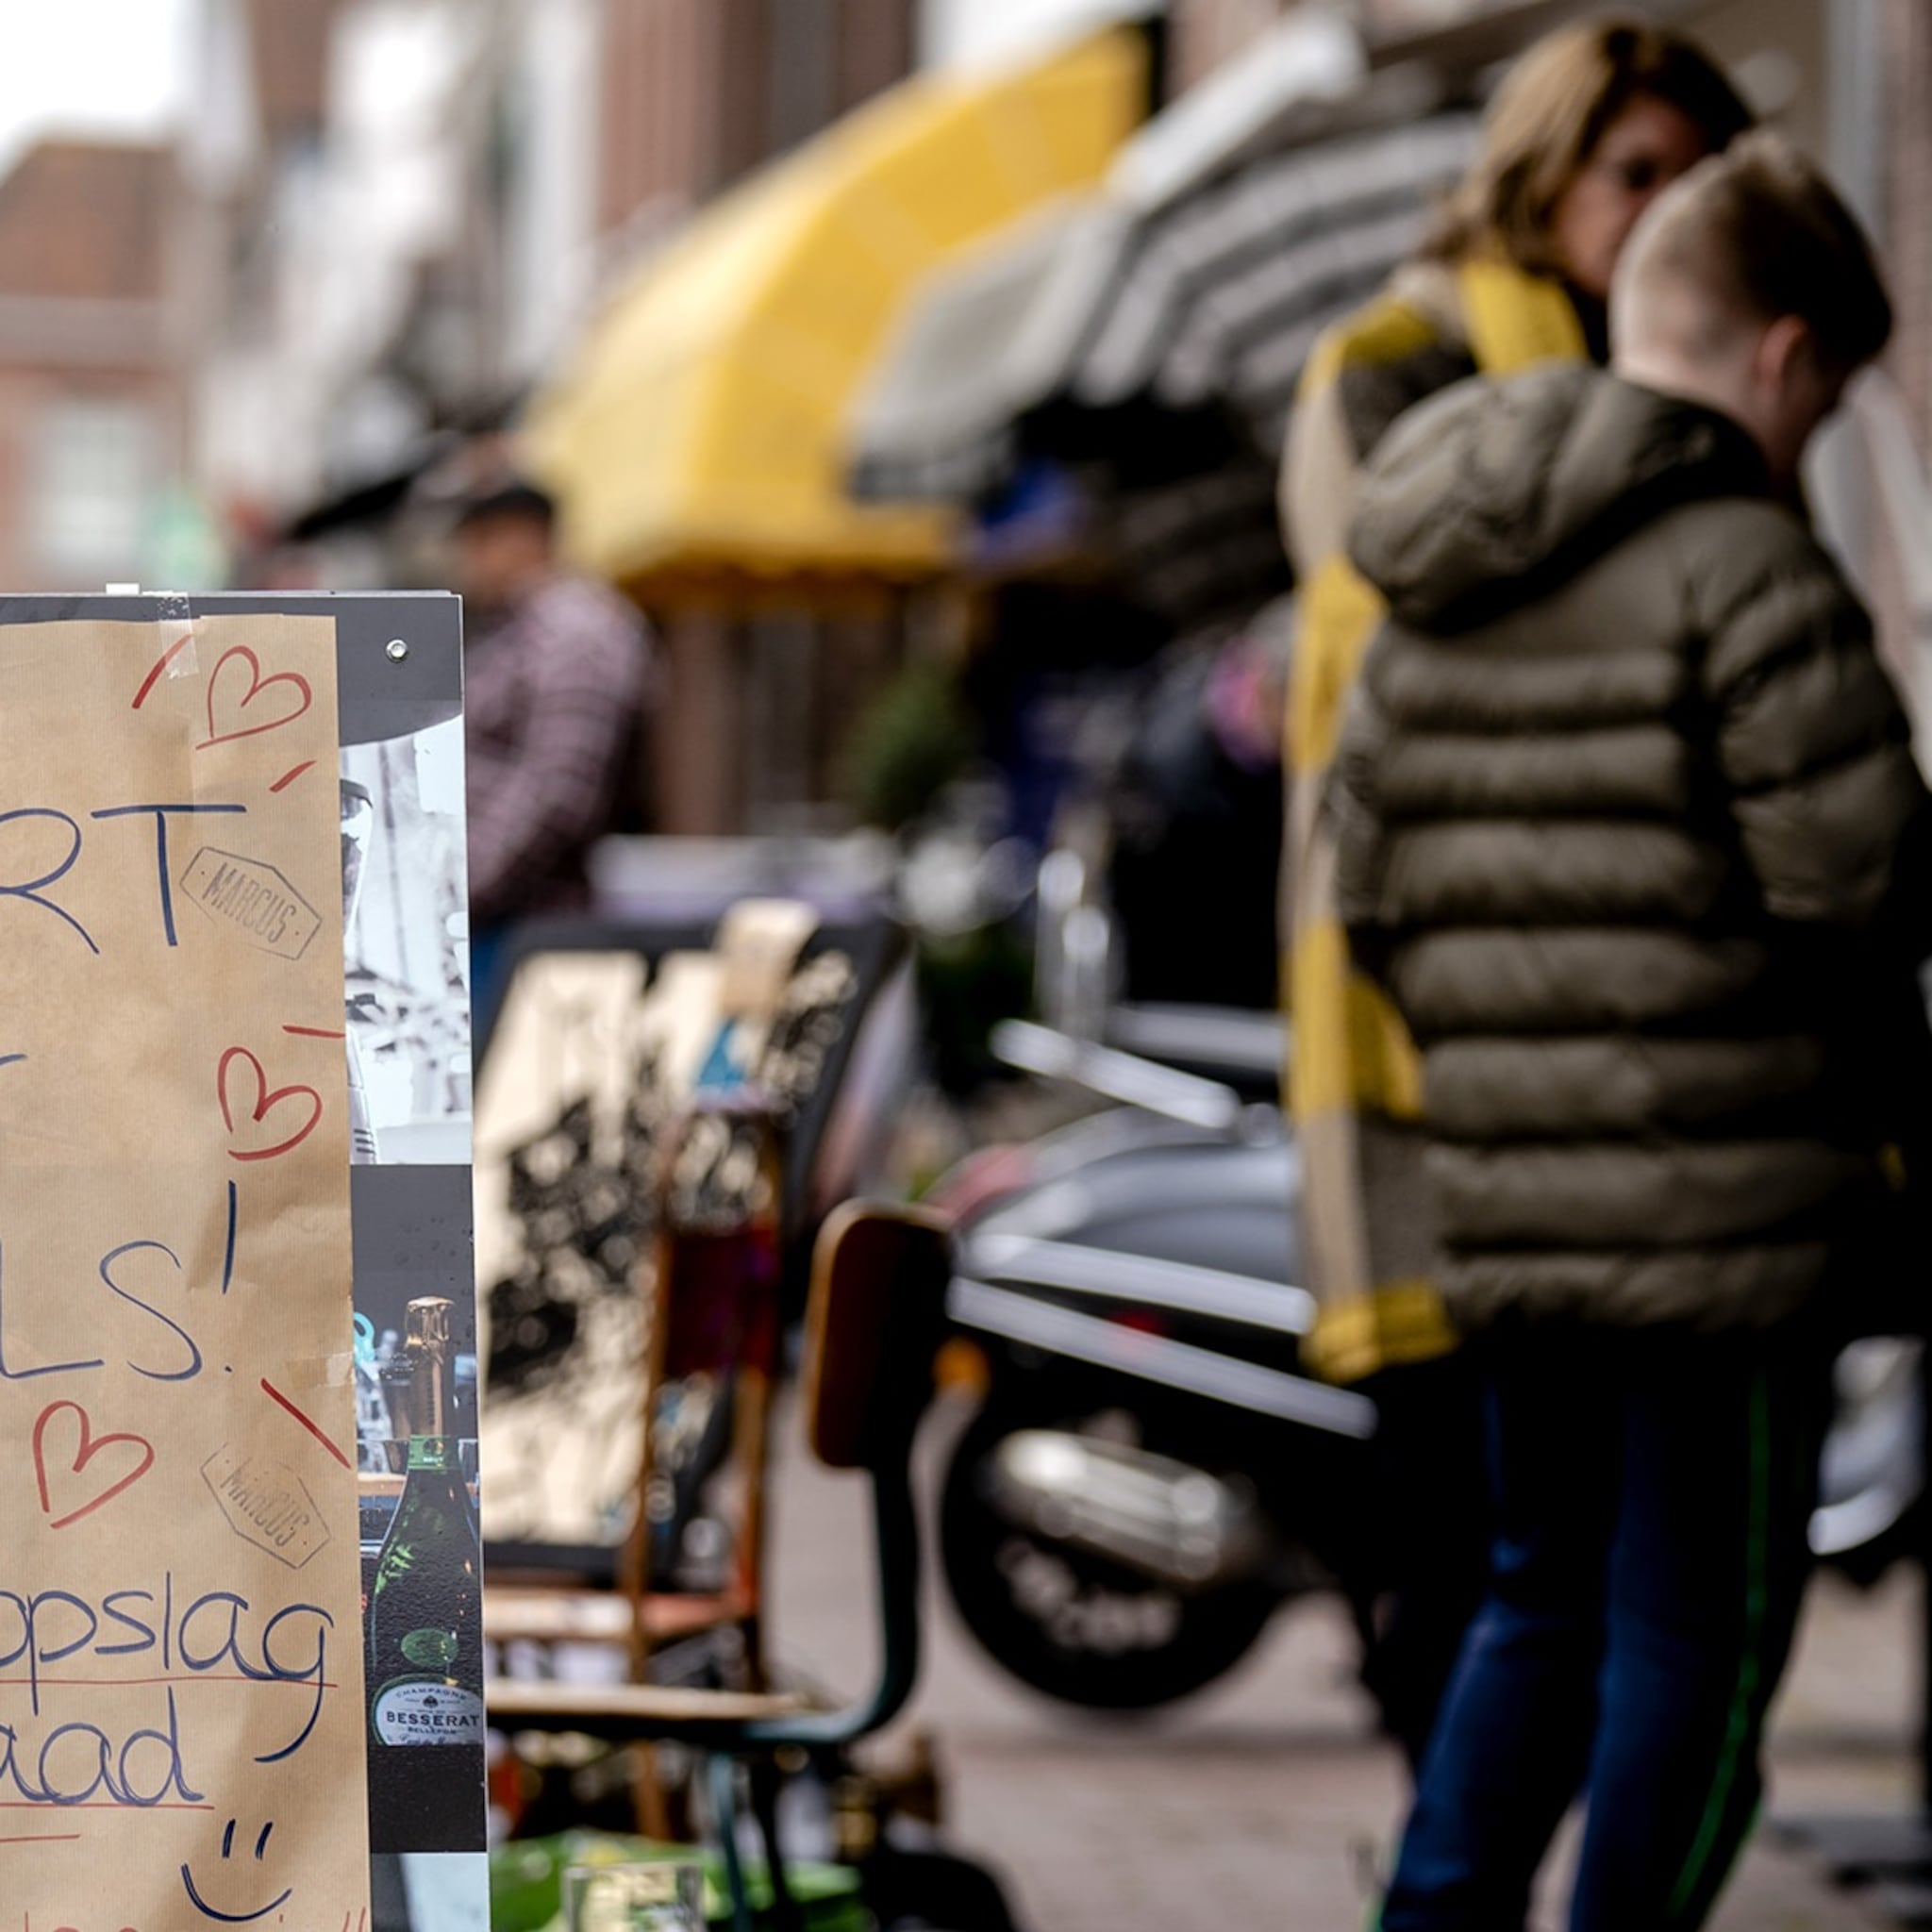 RT
MARCUS
LS!
MARCUS
opslag
aad
CHAMPAGNE
BESSERAT
BELLEFON